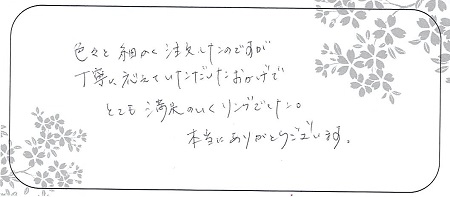 色々と細かく注文したのですが
丁寧に応えていただいたおかげで
とても満足のいくリングでした。
本当にありがとうございます。